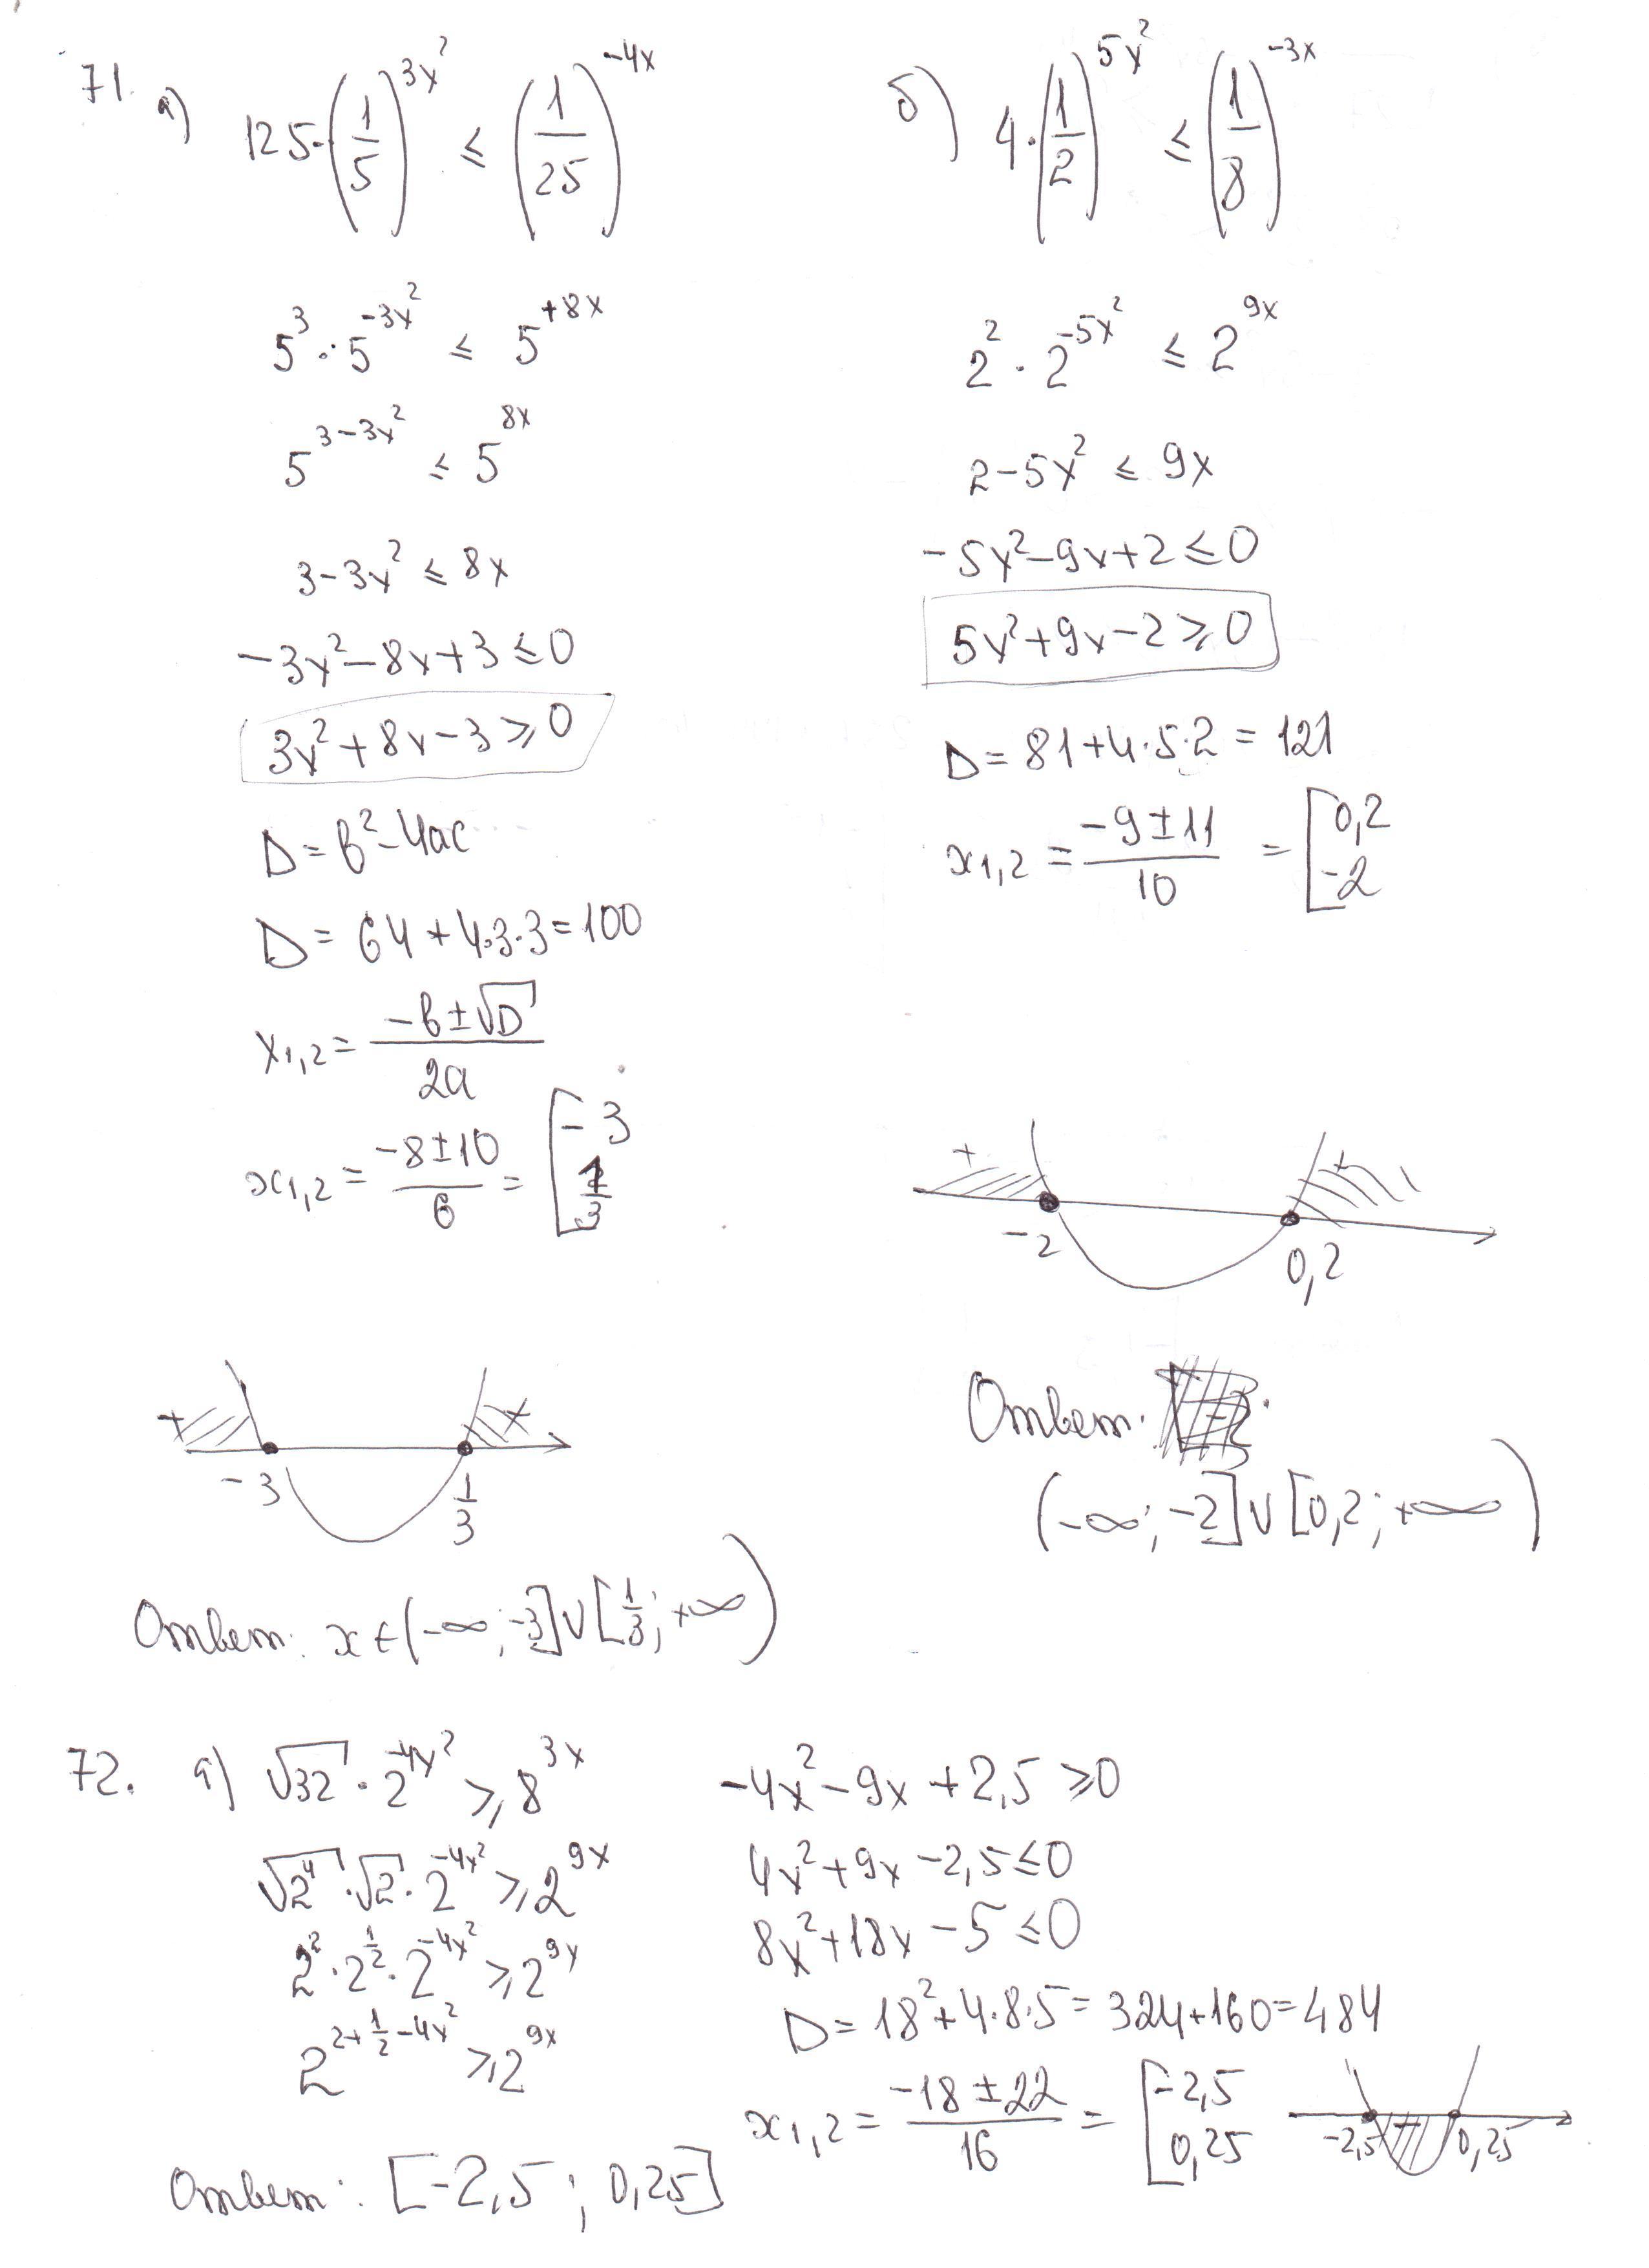 71. а) 125·(1/5)^(3x²) ≤ (1/25)^(-4x)
5³·5^(-3x²) ≤ 5^(+8x)
5^(3-3x²) ≤ 5^(8x)
3-3x² ≤ 8x
-3x²-8x+3 ≤ 0
3x²+8x-3 ⩾ 0
D = b²-4ac
D = 64+4·3·3=100
x₁,₂ = (-b±√D)/(2a)
x₁,₂ = (-8±10)/6 = [-3; 1/3
+ -3 1/3 +
Ответ: x∈(-∞; -3]∪[1/3; +∞)
б) 4·(1/2)^(5x²) ≤ (1/8)^(-3x)
2²·2^(-5x²) ≤ 2^(9x)
2-5x² ≤ 9x
-5x²-9x+2 ≤ 0
5x²+9x-2 ⩾ 0
D = 81+4·5·2 = 121
x₁,₂ = (-9±11)/10 = [0,2; -2
+ -2 0,2 +
Ответ:
(-∞; -2]∪[0,2; +∞)
72. а) √32·2^(-4x²) ⩾ 8^(3x)
√2⁴·√2·2^(-4x²) ⩾ 2^(9x)
2²·2^(1/2)·2^(-4x²) ⩾ 2^(9x)
2^(2+1/2-4x²) ⩾ 2^(9x)
-4x²-9x+2,5 ⩾ 0
4x²+9x-2,5 ≤ 0
8x²+18x-5 ≤ 0
D = 18²+4·8·5 = 324+160=484
x₁,₂ = (-18±22)/16 = [-2,5; 0,25
-2,5 - 0,25
Ответ: [-2,5; 0,25]